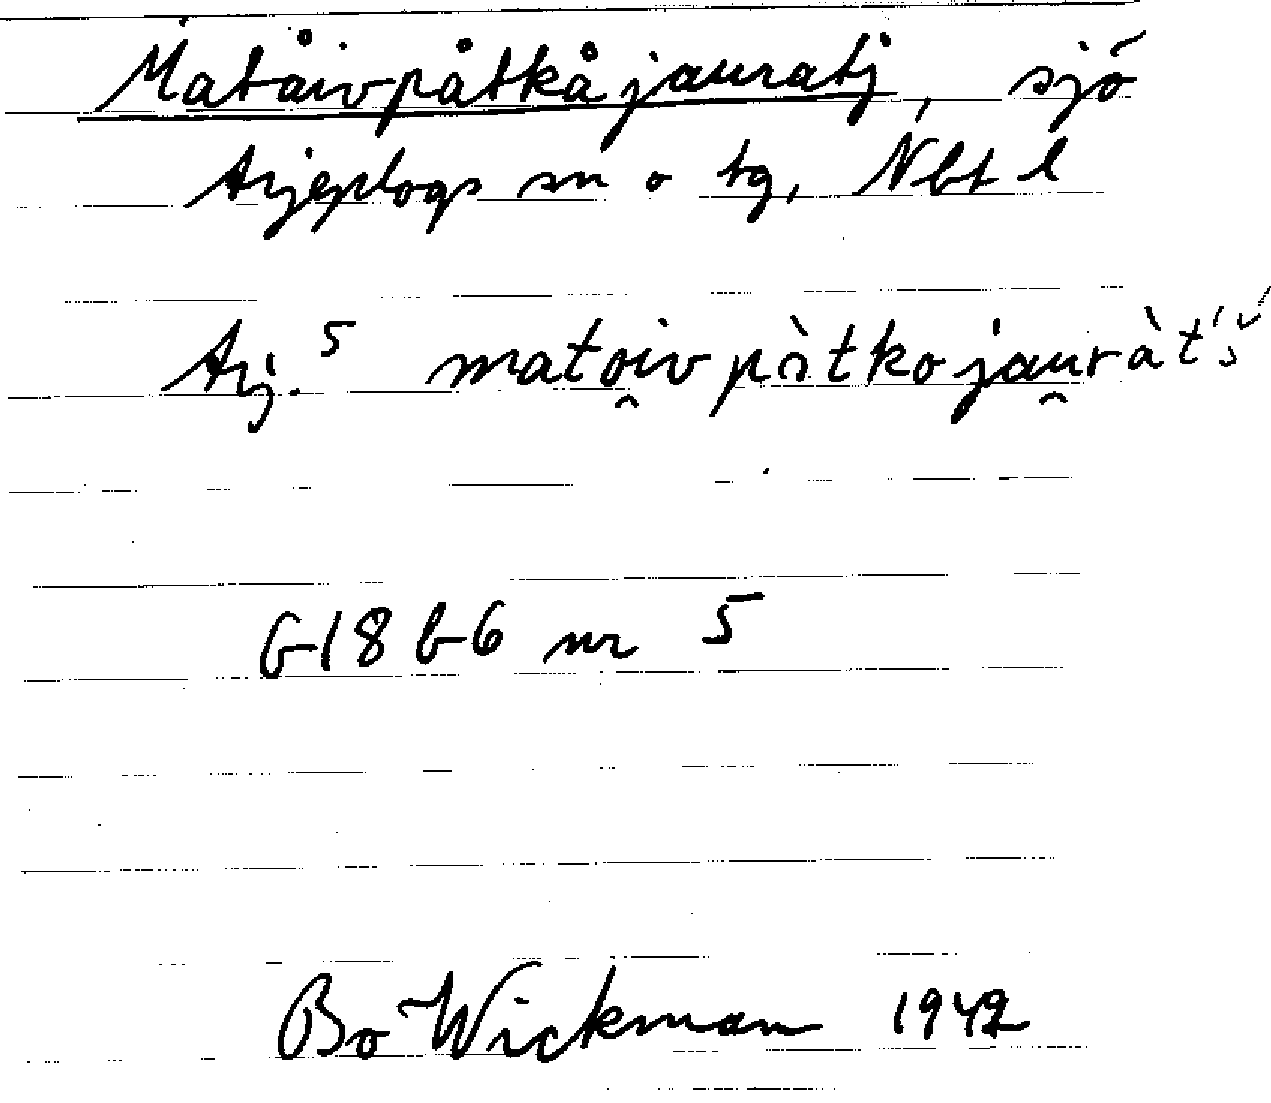 Matåivpåtkåjauratj, sjö
Arjeplogs sn o tg, Nbt l
Arj. 5 matoi̯vpòtkojau̯ràt́š́
G18 b6 nr 5
Bo Wickman 1942